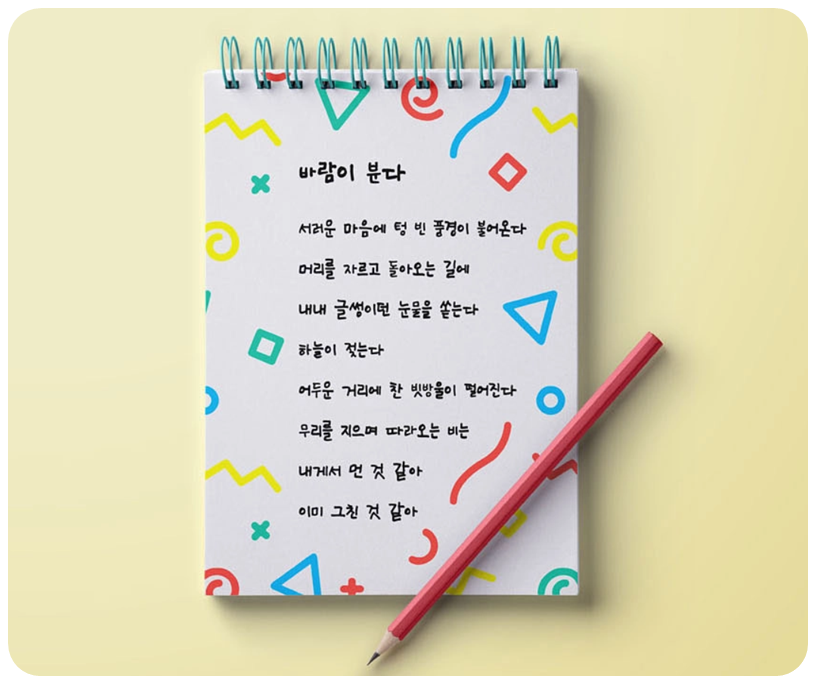 바람이 분다
서러운 마음에 텅 빈 풍경이 불어온다
머리를 자르고 돌아오는 길에
내내 글썽이던 눈물을 쏟는다
하늘이 젖는다
어두운 거리에 찬 빗방울이 떨어진다
무리를 지으며 따라오는 비는
내게서 먼 것 같아
이미 그친 것 같아